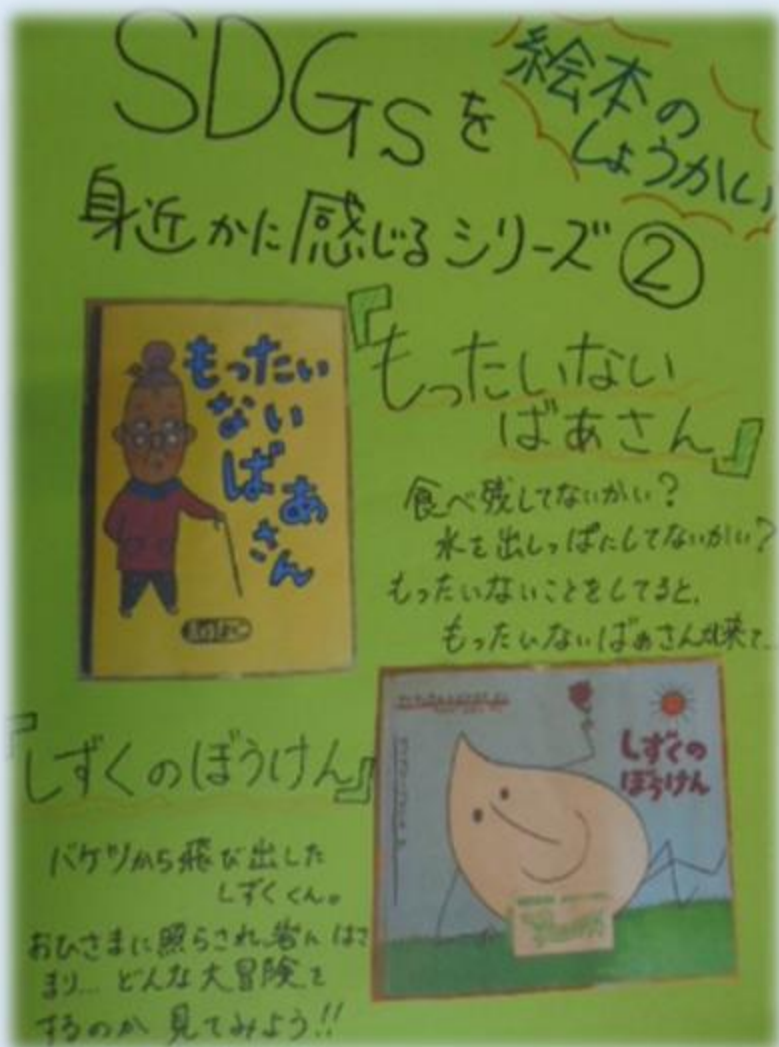 SDGsを
絵本の
しょうかい
身近かに感じるシリーズ②
『もったいない
ばあさん』
もったい
ない
ばあ
さん
食べ残してないかい?
水を出しっぱにしてないかい?
もったいないことをしてると、
もったいないばあさんが来て…
『しずくのぼうけん』
しずくの
ぼうけん
バケツから飛び出した
しずくくん。
おひさまに照らされ、岩にはさ
まり… どんな大冒険を
するのか 見てみよう!!